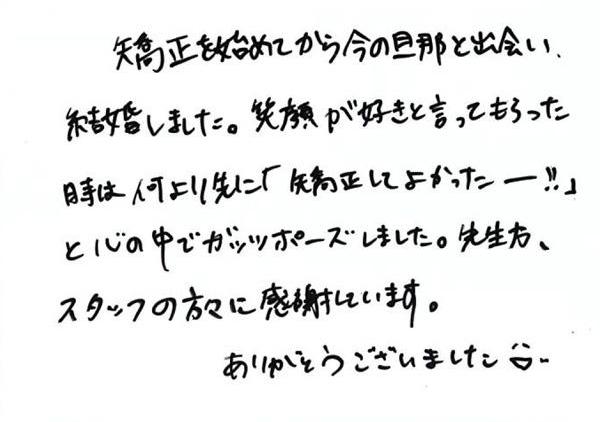 矯正を始めてから今の旦那と出会い、
結婚しました。笑顔が好きと言ってもらった
時は何より先に「矯正してよかったー!!」
と心の中でガッツポーズしました。先生方、
スタッフの方々に感謝しています。
ありがとうございました